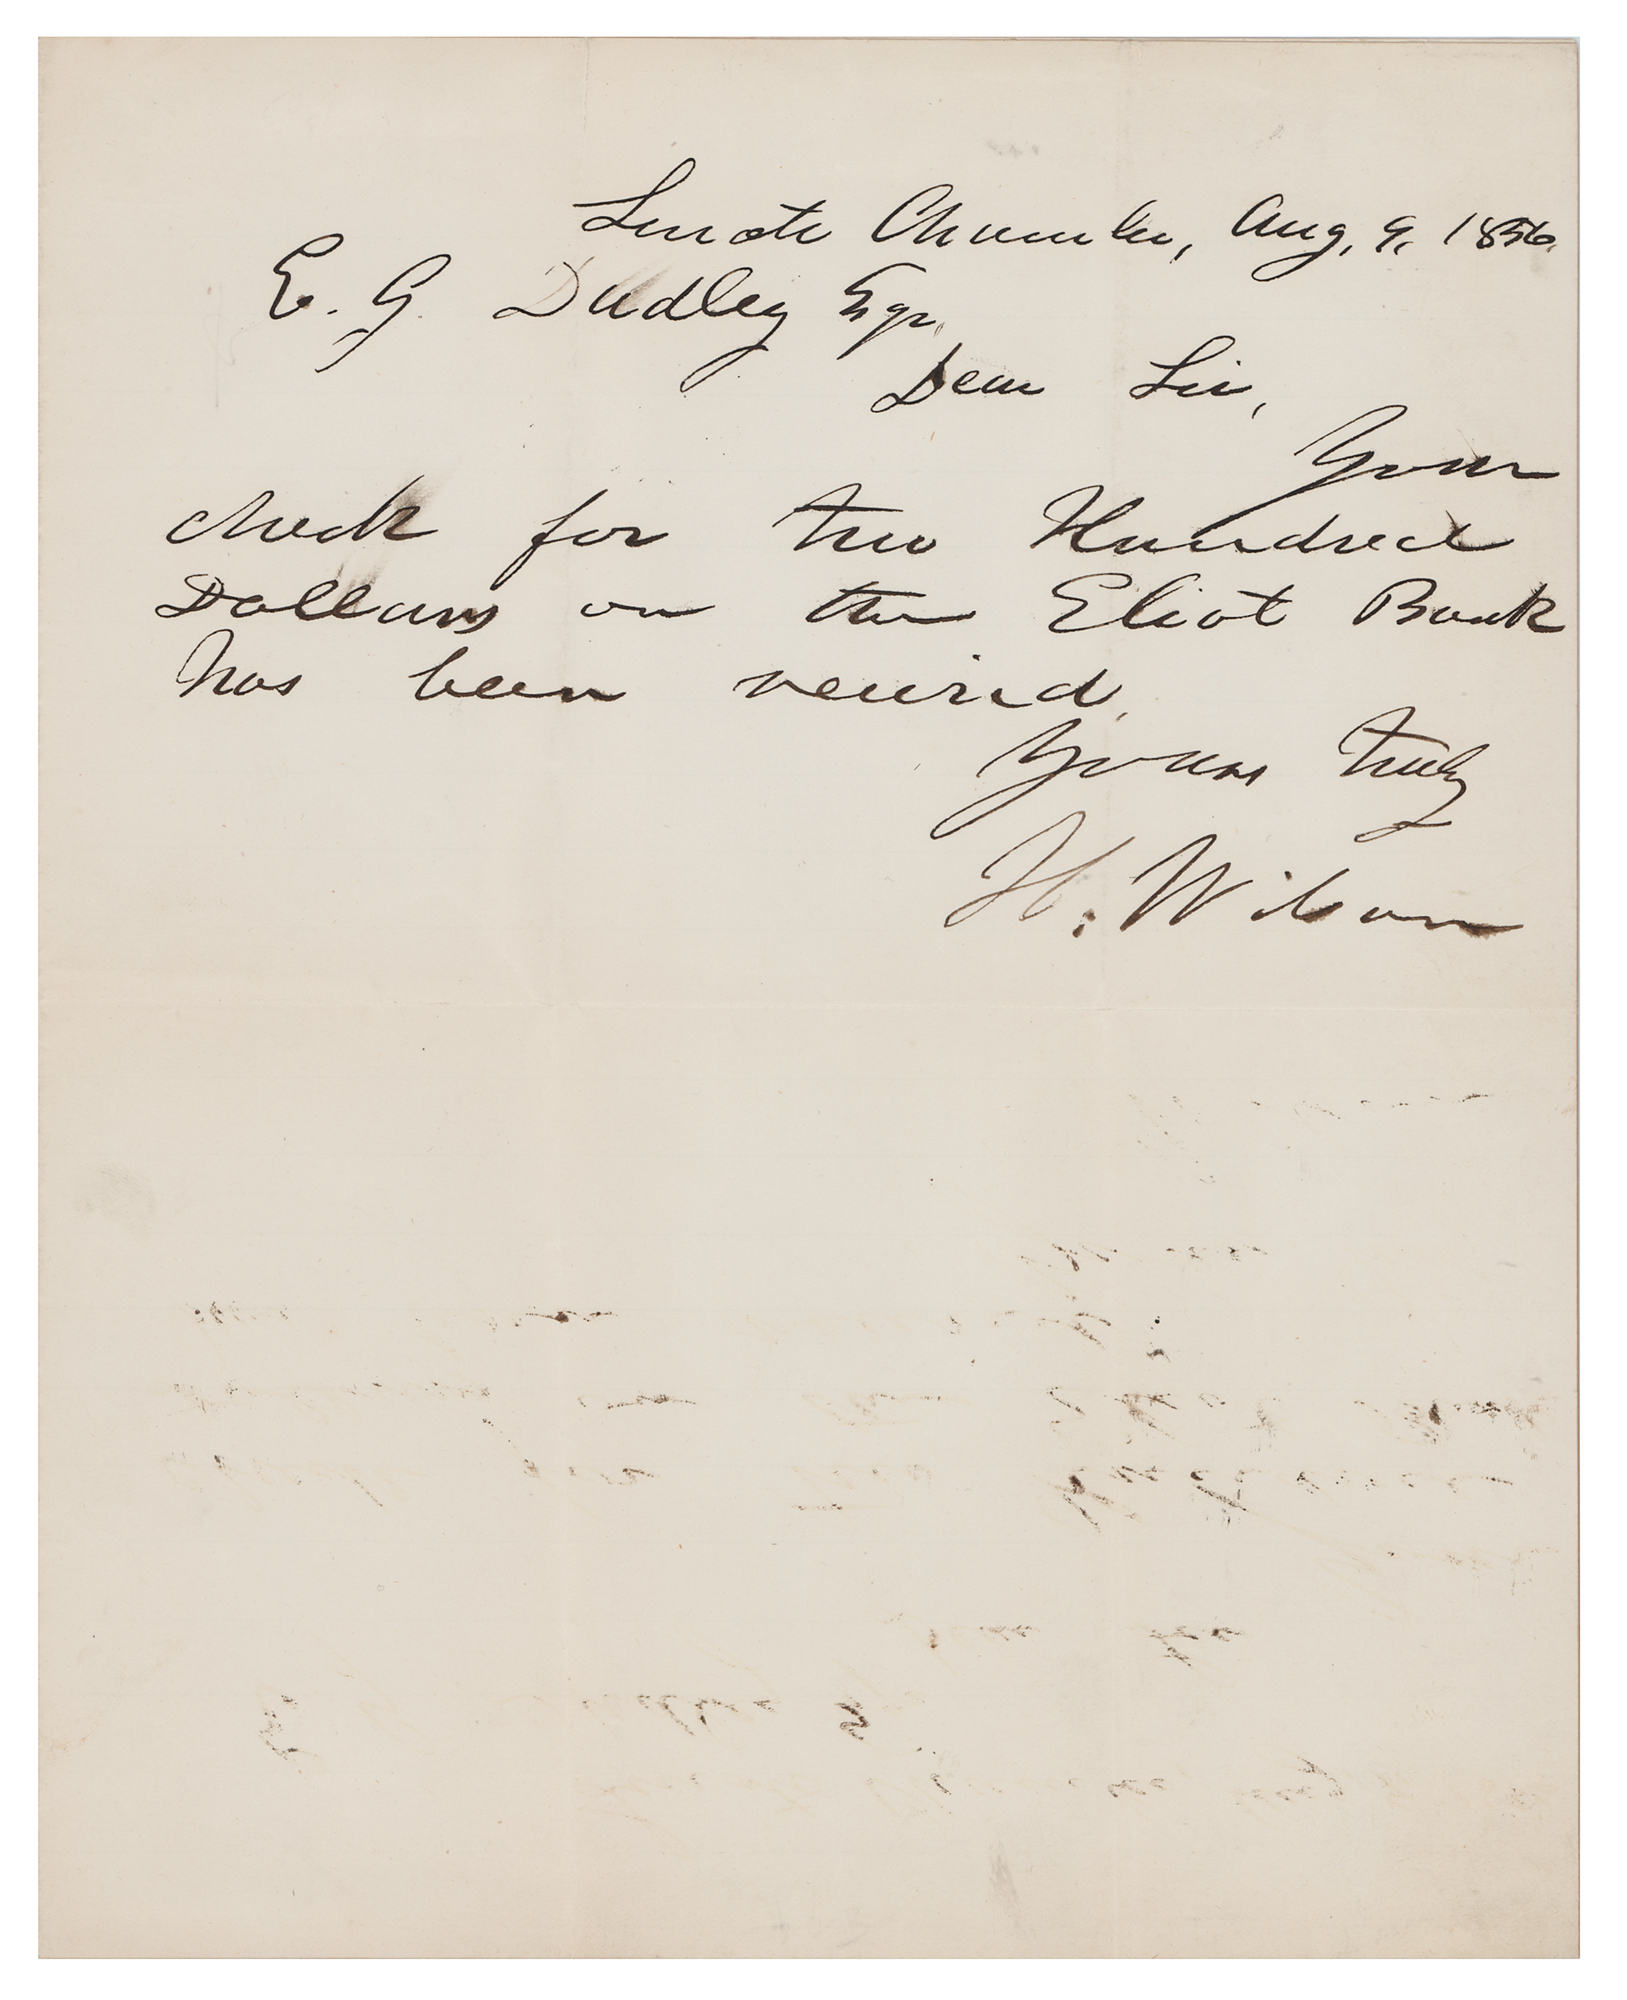 Senate Chamber, Aug, 9, 1856.
E. G. Dudley Esqr.
Dear Sir,
Your
check for two Hundred
Dollars on the Eliot Bank
has been received.
Yours truly
H. Wilson